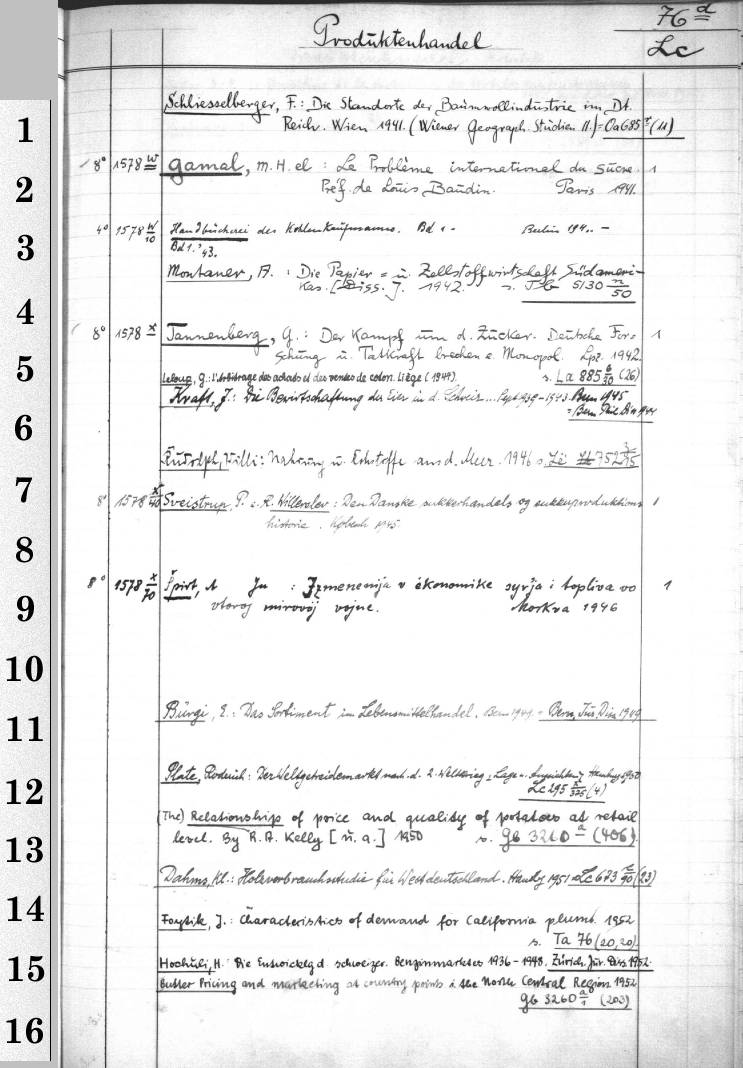 76 d
Produktenhandel
Lc
Schliesselberger, F.: Die Standorte der Baumwollindustrie im Dt.
Reich. Wien 1941. (Wiener Geograph. Studien 11.) = Oa 685 (11)
1
8° 1578 w Gamal, M. H. el : Le Problème international du sucre. 1
2
Préf. de Louis Baudin. Paris 1941.
4° 1578 w/10 Handbücherei des Kohlenkaufmanns. Bd 1.- Berlin 194.. -
3
Bd 1. '43.
Montaner, A. : Die Papier = u. Zellstoffwirtschaft Südameri-
kas. [Diss.]. 1942. s. 5130 n/50
4
8° 1578 x Tannenberg, G.: Der Kampf um d. Zucker. Deutsche For- 1
schung u. Tatkraft brechen e. Monopol. Lpz. 1942.
5
Leloup, G.: L'Arbitrage des achats et des ventes de coton. Liège (1944) s. La 885 /30 (26)
Kraft, J.: Die Bewirtschaftung der Eier in d. Schweiz... Sept. 1939-1943. Bern 1945
= Bern Phil. Diss 1944
6
Rudolph, Willi: Nahrung u. Rohstoffe aus d. Meer. 1946 s. 752
7
8° 1578 x/40 Sveistrup, P. e. R. Willerslev: Den Danske sukkerhandels og sukkerproduktions 1
historie. Københ 1945.
8
8° 1578 x/70 Špirt, A Ju : Izmenenija v ėkonomike syrja i topliva vo 1
9
vtoroj mirovoj vojne. Moskva 1946
10
Bürgi, E.: Das Sortiment im Lebensmittelhandel. Bern 1949. = Bern, Jur. Diss 1949
11
Plate, Roderich: Der Weltgetreidemarkt nach d. 2. Weltkrieg: Lage u. Aussichten. Hamburg 1950
12
Lc 295 x/325 (4)
(The) Relationship of price and quality of potatoes at retail
level. By R. A. Kelly [u. a.] 1950 s. Gb 3260 a (406).
13
Dahms, Kl.: Holzverbrauchsstudie für Westdeutschland. Hambg 1951 = Lc 673 /90 (23)
14
Foytik, J.: Characteristics of demand for California plums. 1952
s. Ta 76 (20,20)
15
Hochuli, H.: Die Entwicklg d. schweizer. Benzinmarktes 1936-1948. Zürich. Jur. Diss. 1952.
Butter Pricing and marketing at country points in the North Central Region 1952
16
Gb 3260 a/1 (203)